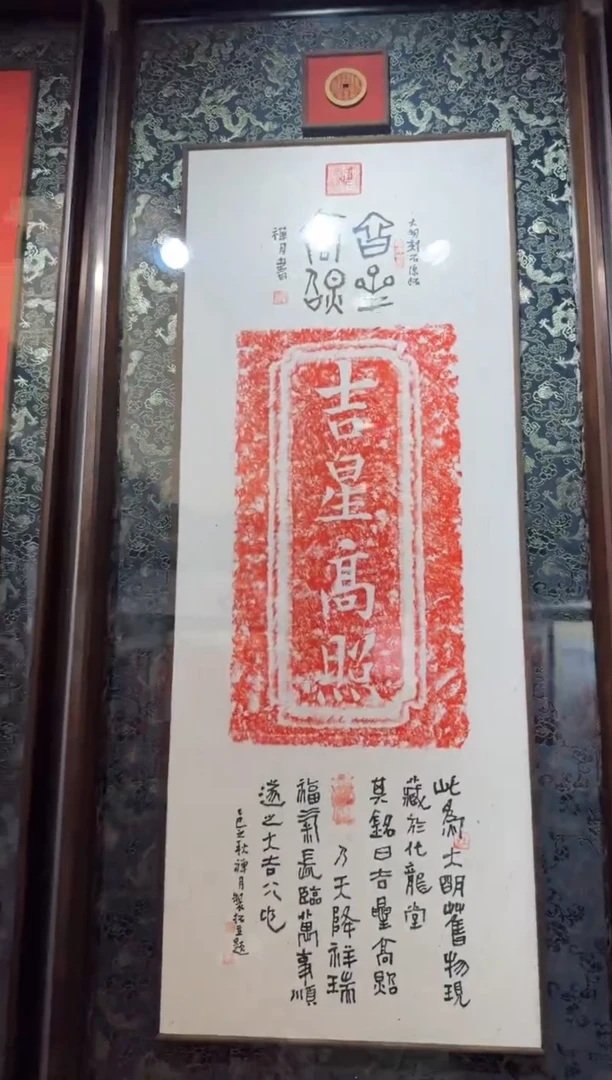 大明刻石原拓
吉星
高照
禪月書
吉星高照
此為大明舊物現
藏於化龍堂
其銘曰吉星高照
乃天降祥瑞
福氣長臨萬事順
遂之大吉
秋禪月製拓並題